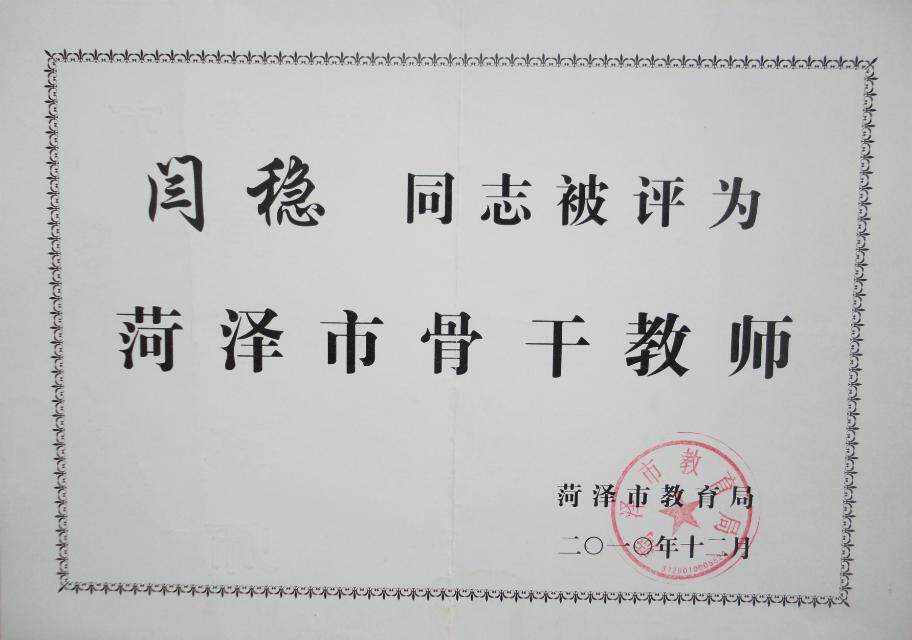 闫稳 同志被评为
菏泽市骨干教师
菏泽市教育局
二〇一〇年十二月
菏泽市教育局